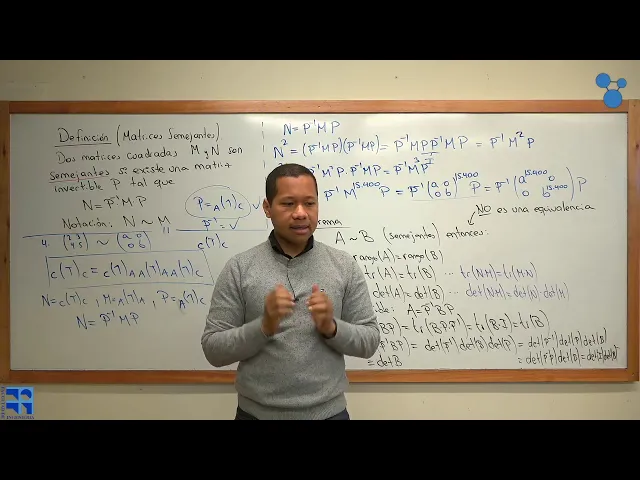 Definición (Matrices Semejantes)
Dos matrices cuadradas M y N son
semejantes si existe una matriz
invertible P tal que
N = P⁻¹MP
Notación. N ~ M
P = A(T)C
P⁻¹ = ✓
C(T)C = C(T)A A(T)A A(T)C
N = C(T)C, M = A(T)A, P = A(T)C
N = P⁻¹MP
N = P⁻¹MP
N² = (P⁻¹MP)(P⁻¹MP) = P⁻¹MPP⁻¹MP = P⁻¹M²P
P⁻¹M²P · P⁻¹MP = P⁻¹M³P
P⁻¹M^15.400 P = P⁻¹(a 0 0 b)^15.400 P = P⁻¹(a^15.400 0 0 b^15.400)P
NO es una equivalencia
A ~ B (semejantes) entonces:
rango(A) = rango(B)
tr(A) = tr(B) ... tr(NM) = tr(MN)
det(A) = det(B) ... det(N·M) = det(N)·det(M)
A = P⁻¹BP
= tr(B·P·P⁻¹) = tr(B·I) = tr(B)
= det(P⁻¹)det(B)det(P) = det(P⁻¹)det(P)det(B)
= det B